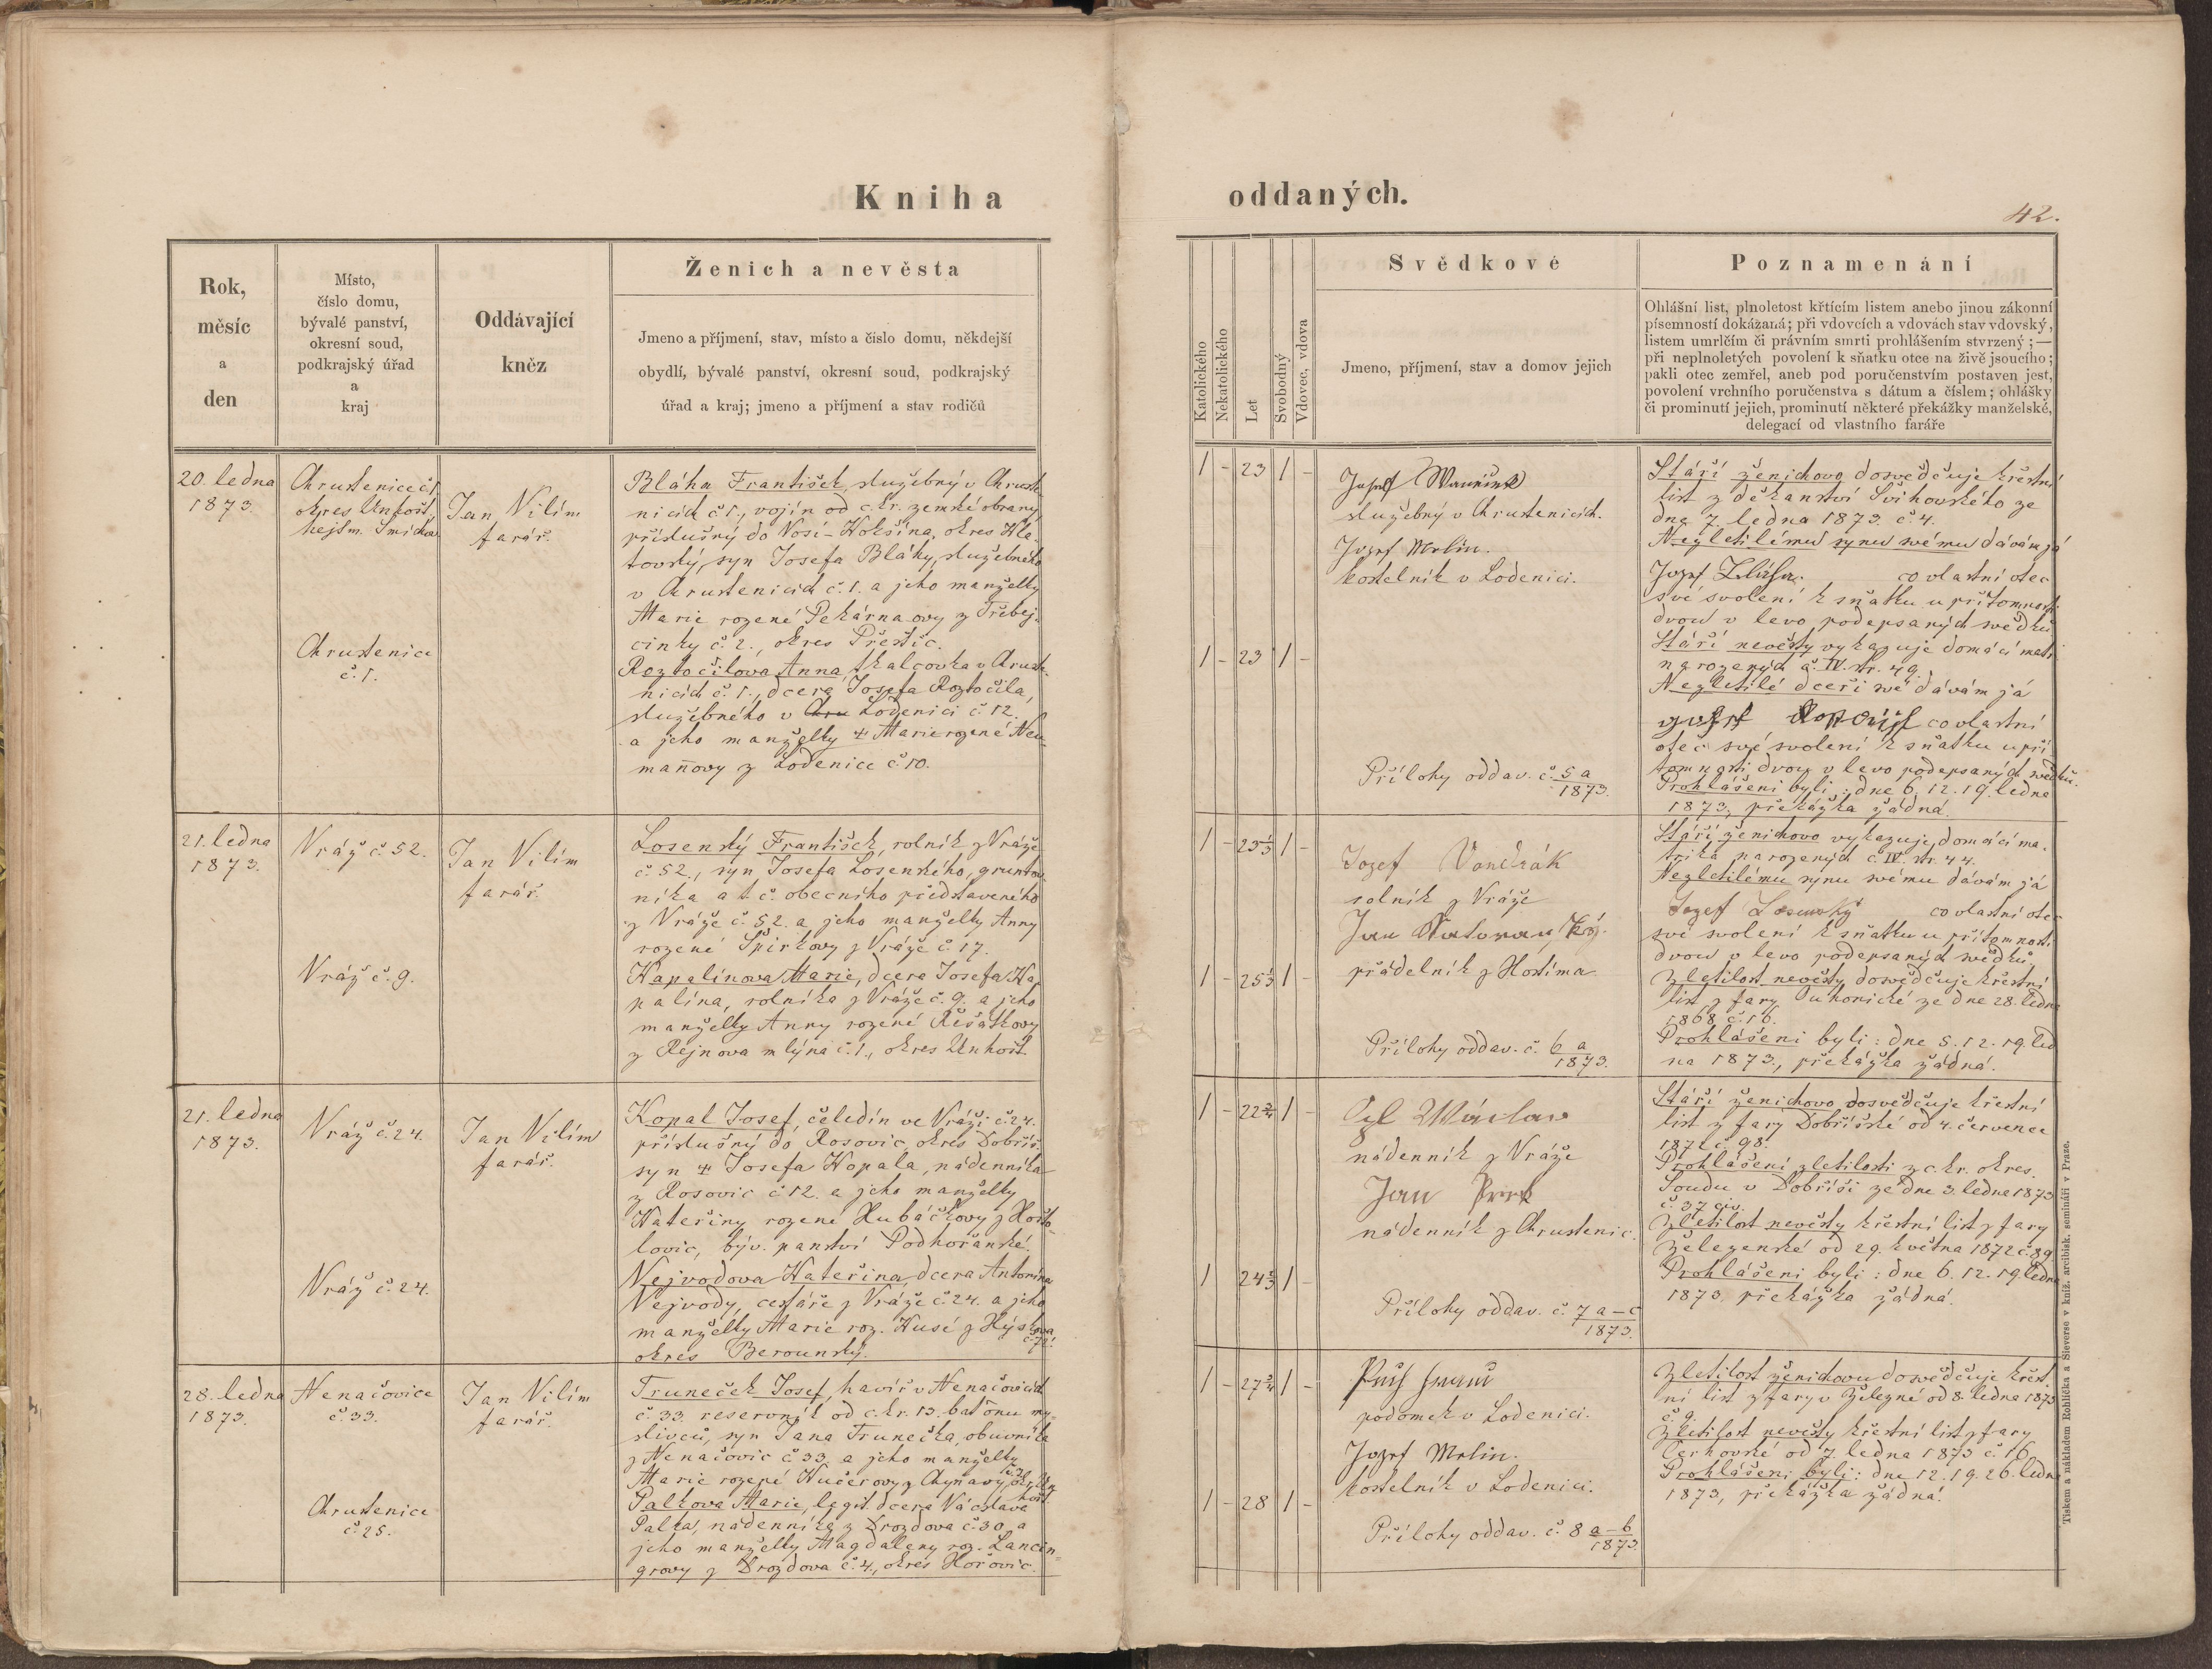 Kniha
oddaných.
42.
Rok,
měsíc
a
den
Místo,
číslo domu,
bývalé panství,
okresní soud,
podkrajský úřad
a
kraj
Oddávající
kněz
Ženich a nevěsta
Jmeno a příjmení, stav, místo a čislo domu, někdejší
obydlí, bývalé panství, okresní soud, podkrajský
úřad a kraj; jmeno a příjmení a stav rodičů
Katolického
Nekatolického
Let
Svobodný
Vdovec, vdova
Svědkové
Jmeno, příjmení, stav a domov jejich
Poznamenání
Ohlášní list, plnoletost křtícím listem anebo jinou zákonní
písemností dokázaná; při vdovcích a vdovách stav vdovský,
listem umrlčím či právním smrti prohlášením stvrzený; —
při neplnoletých povolení k sňatku otce na živě jsoucího;
pakli otec zemřel, aneb pod poručenstvím postaven jest,
povolení vrchního poručenstva s dátum a číslem; ohlášky
či prominutí jejich, prominutí některé překážky manželské,
delegací od vlastního faráře
20. ledna
1873.
Chrustenice č. 1.
okres Unhošť,
hejtm. Smíchov
Chrustenice
č. 1.
Jan Vilím
farář.
Bláha František, služebný v Chruste-
nicích č. 1., vojín od c. kr. zemské obrany,
příslušný do Nosí-Kokšína, okres Kla-
tovský, syn Josefa Bláhy, služebného
v Chrustenicích č. 1. a jeho manželky
Marie rozené Pekárnaovy z Třebej-
cinky č. 2., okres Přeštic.
Roztočilova Anna, tkalcovka v Chruste-
nicích č. 1., dcera Josefa Roztočila,
služebného v Chru Loděnici č. 12.
a jeho manželky † Marie rozené Neu-
mannovy z Loděnice č. 10.
1 - 23 1 -
1 - 23 1 -
Josef
služebný v Chrustenicích.
Josef Mrlin.
kostelník v Loděnici.
Přílohy oddav. č. 5 a
1873.
Stáří ženichovo dosvědčuje křestní
list z děkanství Švihovského ze
dne 7. ledna 1873. č. 4.
Nezletilému synu svému dávám já
Josef Bláha. co vlastní otec
své svolení k sňatku u přítomnosti
dvou v levo podepsaných svědků
Stáří nevěsty vykazuje domácí matr.
narozených č. IV. str. 49.
Nezletilé dceři své dávám já
co vlastní
otec své svolení k sňatku u pří
tomnosti dvou v levo podepsaných svědků.
Prohlášeni byli: dne 6. 12. 19. ledna
1873, překážka žádná.
21. ledna
1873.
Vráž č. 52.
Vráž č. 9.
Jan Vilím
farář.
Losenský František, rolník z Vráže
č. 52., syn Josefa Losenského, gruntov-
níka a t. č. obecního představeného
z Vráže č. 52. a jeho manželky Anny
rozené Špirkovy z Vráže č. 17.
Kapalínova Marie, dcera Josefa Ka-
palína, rolníka z Vráže č. 9. a jeho
manželky Anny rozené Řešátkovy
z Rejnova mlýna č. 1., okres Unhošť.
1 - 23 1/3 1 -
1 - 25 1/3 1 -
Jozef Vondrák
rolník z Vráže
Jan
přádelník z Hostíma.
Přílohy oddav. č. 6 a
1873.
Stáří ženichovo vykazuje domácí ma-
trika narozených č. IV. str. 44.
Nezletilému synu svému dávám já
Jozef Losenský co vlastní otec
své svolení k sňatku u přítomnosti
dvou v levo podepsaných svědků.
Zletilost nevěsty dosvědčuje křestní
list z fary Ouhonické ze dne 28. ledna
1868, č. 16.
Prohlášeni byli: dne 5. 12. 19. led
na 1873., překážka žádná.
21. ledna
1873.
Vráž č. 24.
Vráž č. 24.
Jan Vilím
farář.
Kopal Josef, čeledín ve Vráži č. 24.
příslušný do Rosovic, okres Dobříš,
syn † Josefa Kopala, nádenníka
z Rosovic č. 12. a jeho manželky
Kateřiny rozené Hubáčkovy z Hošťo-
lovic, býv. panství Podhořanské.
Nejvodova Kateřina, dcera Antonína
Nejvody, cestáře z Vráže č. 24. a jeho
manželky Marie roz. Husé z Hýskova
č. 72.
okres Berounský.
1 - 22 3/4 1 -
1 24 2/3 1 -
Cyl Wáclav
nádenník z Vráže
Jan
nádenník z Chrustenic.
Přílohy oddav. č. 7 a-c
1873.
Stáří ženichovo dosvědčuje křestní
list z fary Dobříšské od 4. července
1872 č. 98.
Prohlášení zletilosti z c. kr. okres.
Soudu v Dobříši ze dne 3. ledna 1873
č. 37 civ.
Zletilost nevěsty křestní list z fary
Železenské od 29. května 1872 č. 89
Prohlášeni byli: dne 6. 12. 19. ledna
1873. překážka žádná.
28. ledna
1873.
Nenačovice
č. 33.
Chrustenice
č. 25.
Jan Vilím
farář.
Truneček Josef, havíř v Nenačovicích
č. 33. reservník od c. kr. 13. bat̄onu my-
slivců, syn Jana Trunečka, obuvníka
z Nenačovic č. 33. a jeho manželky
Marie rozené Kučerovy z Chyňavy,
Palkova Marie, legit. dcera Václava
Palka, nádenníka z Drozdova č. 30. a
jeho manželky Magdaleny roz. Lancin-
grovy z Drozdova č. 4., okres Hořovic.
1 - 27 3/4 1 -
1 - 28 1 -
podomek v Loděnici.
Josef Mrlin.
kostelník v Loděnici.
Přílohy oddav. č. 8 a-b
1873.
Zletilost ženichovu dosvědčuje křest-
ní list z fary v Železné od 8. ledna 1873
č. 9.
Zletilost nevěsty křestní list z fary
Cerhovské od 7. ledna 1873 č. 16
Prohlášeni byli: dne 12. 19. 26. ledna
1873, překážka žádná.
Tiskem a nákladem Rohlíčka a Sieverse v kníž. arcibisk. semináři v Praze.